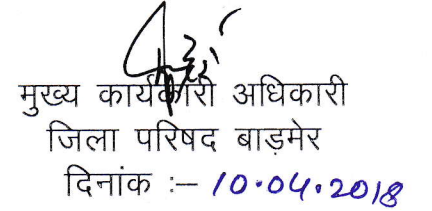 मुख्य कार्यकारी अधिकारी
जिला परिषद बाड़मेर
दिनांक :– 10.04.2018